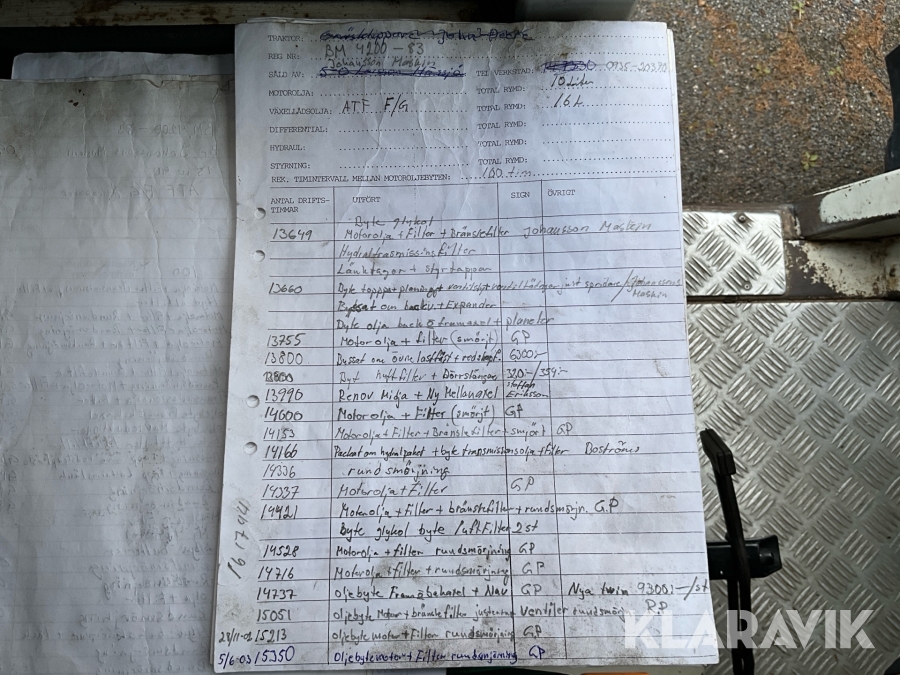 TRAKTOR:
REG NR: BM 4200 - 83
Johansson Maskin
SÅLD AV: TEL VERKSTAD: 0935-20380
MOTOROLJA: TOTAL RYMD: 10 Liter
VÄXELLÅDSOLJA: ATF F/G TOTAL RYMD: 16 L
DIFFERENTIAL: TOTAL RYMD:
HYDRAUL: TOTAL RYMD:
STYRNING: TOTAL RYMD:
REK. TIMINTERVALL MELLAN MOTOROLJEBYTEN: 100 tim
ANTAL DRIFTS-TIMMAR UTFÖRT SIGN ÖVRIGT
Byte glykol
13649 Motorolja + Filter + Bränslefilter Johansson Maskin
Hydraltrasmissinsfilter
Länktagor + styrtappar
13660 Byte topppackning
Bussat om + Expander
Byte olja back o framaxel + planeter
13755 Motorolja + filter (smörjt) GP
13800 Bussat om Övre 6300:-
Byt luftfilter + Dörrstängare 320:-/359:-
13996 Renov Midja + Ny Mellanaxel Staffan Eriksson
14000 Motorolja + Filter (smörjt) GP
14153 Motorolja + Filter + Bränslefilter + smörjt GP
14166 Packat om hydralpaket + byte transmissionsolja + filter Boströms
14336 rundsmörjning
14337 Motorolja + Filter GP
14421 Motorolja + Filter + bränslefilter + rundsmörjn. G.P
Byte glykol byte luftFilter 2 st
14528 Motorolja + filter rundsmörjning GP
14716 Motorolja + filter + rundsmörjning GP
14737 oljebyte Framåbakaxel + Nav GP Nya 9300:-/st
15051 oljebyte Motor + bränslefilter justerat ventiler rundsmörj PP
28/11-02 15213 oljebyte motor + Filter rundsmörjning GP
5/6-03 15350 Oljebyte motor + Filter rundsmörjning GP
161794
KLARAVIK